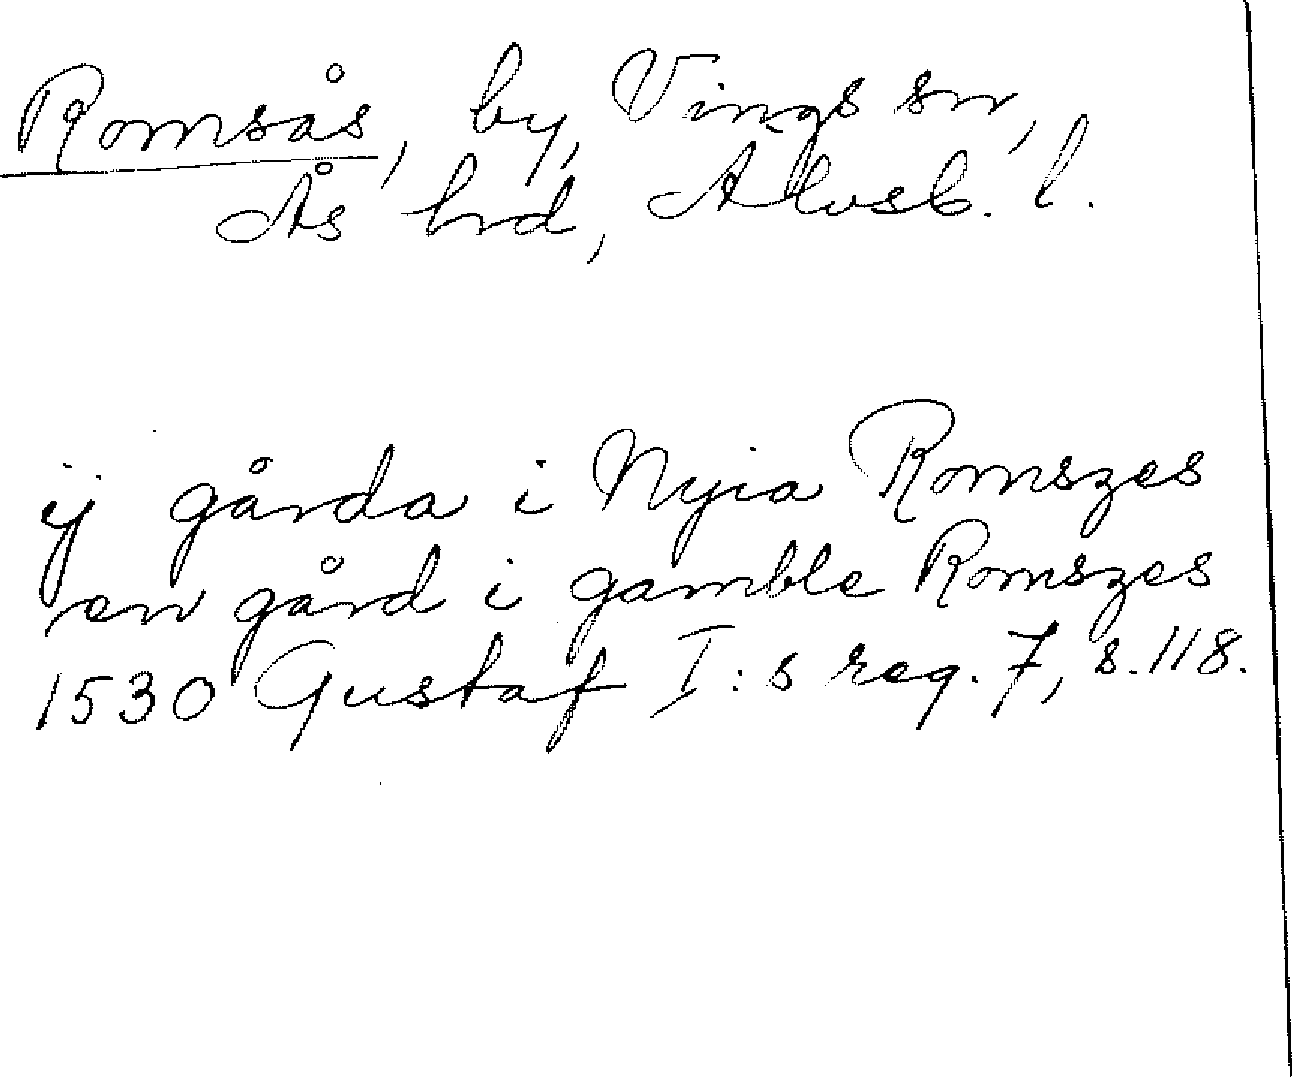 Romsås, by, Vings sn,
Ås hrd, Älvsb. l.
ij gårda i Nyia Romszes
en gård i gamble Romszes
1530 Gustaf I:s reg. 7, s. 118.